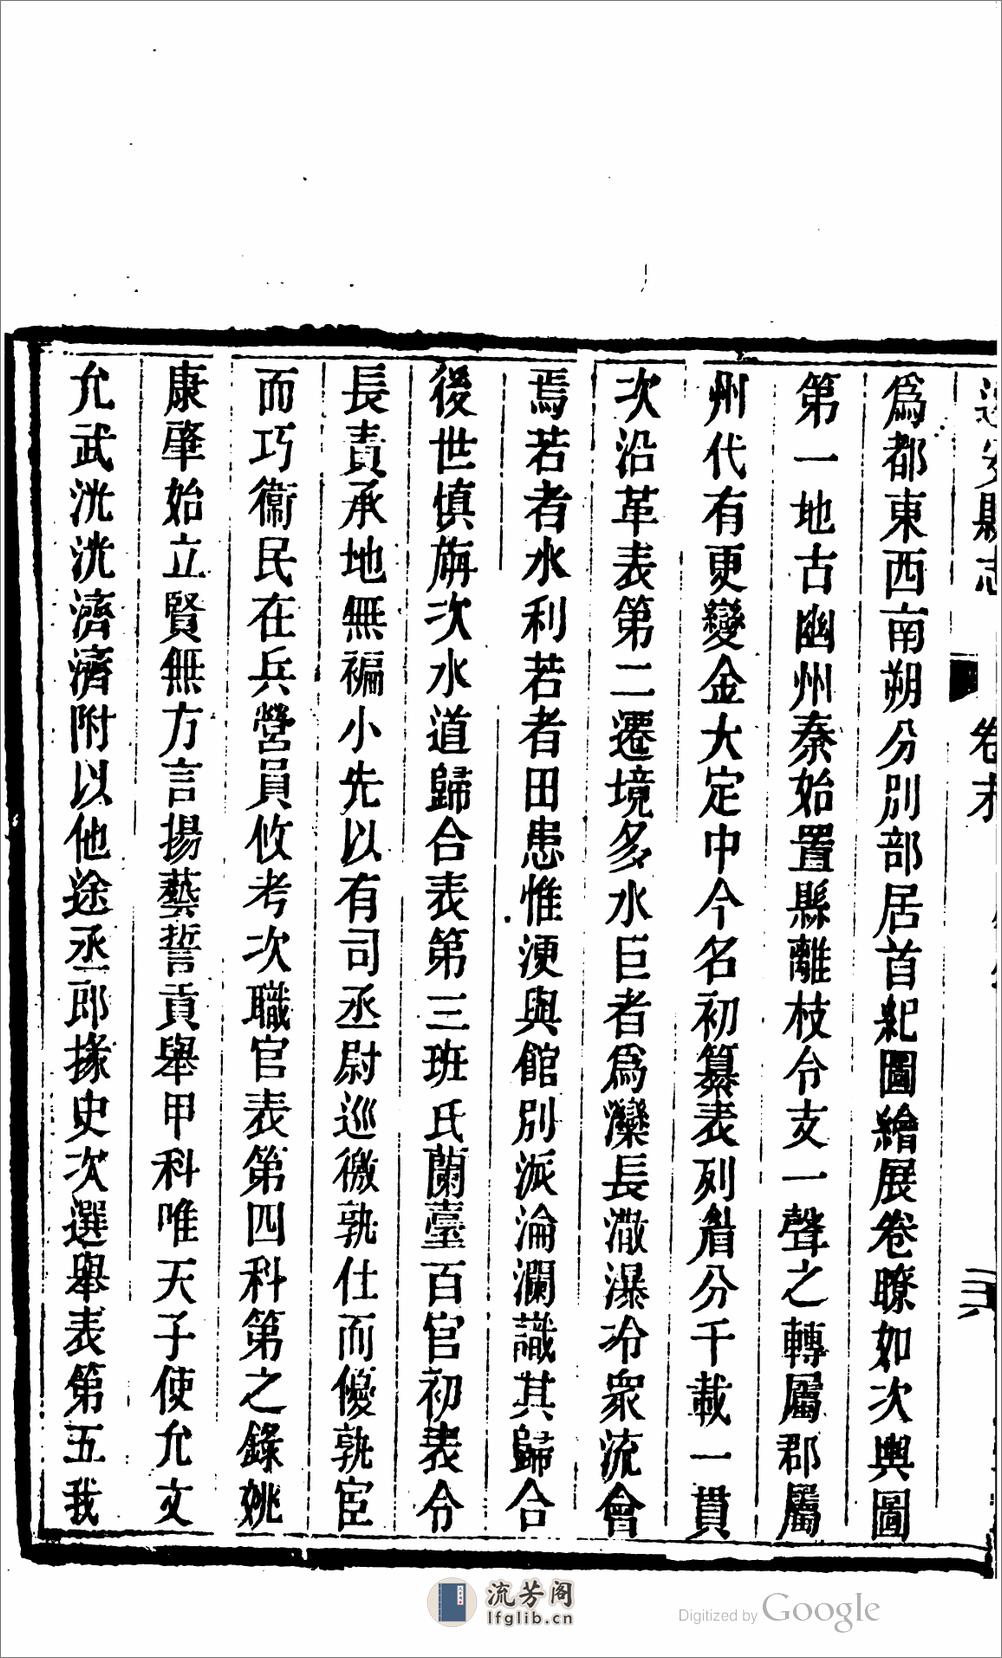 遷安縣志 卷末 二六
爲都東西南朔分別部居首紀圖繪展卷瞭如次輿圖
第一地古幽州秦始置縣離枝令支一聲之轉屬郡屬
州代有更變金大定中今名初纂表列眉分千載一貫
次沿革表第二遷境多水巨者爲灤長瀓瀑泠衆流會
焉若者水利若者田患惟浭與館別派淪瀾識其歸合
後世慎旃次水道歸合表第三班氏蘭臺百官初表令
長責承地無褊小先以有司丞尉巡徼孰仕而優孰宦
而巧衞民在兵營員攸考次職官表第四科第之錄姚
康肇始立賢無方言揚藝誓貢舉甲科唯天子使允文
允武洸洸濟濟附以他途丞郎掾史次選舉表第五我
流芳阁
lfglib.cn
Digitized by Google